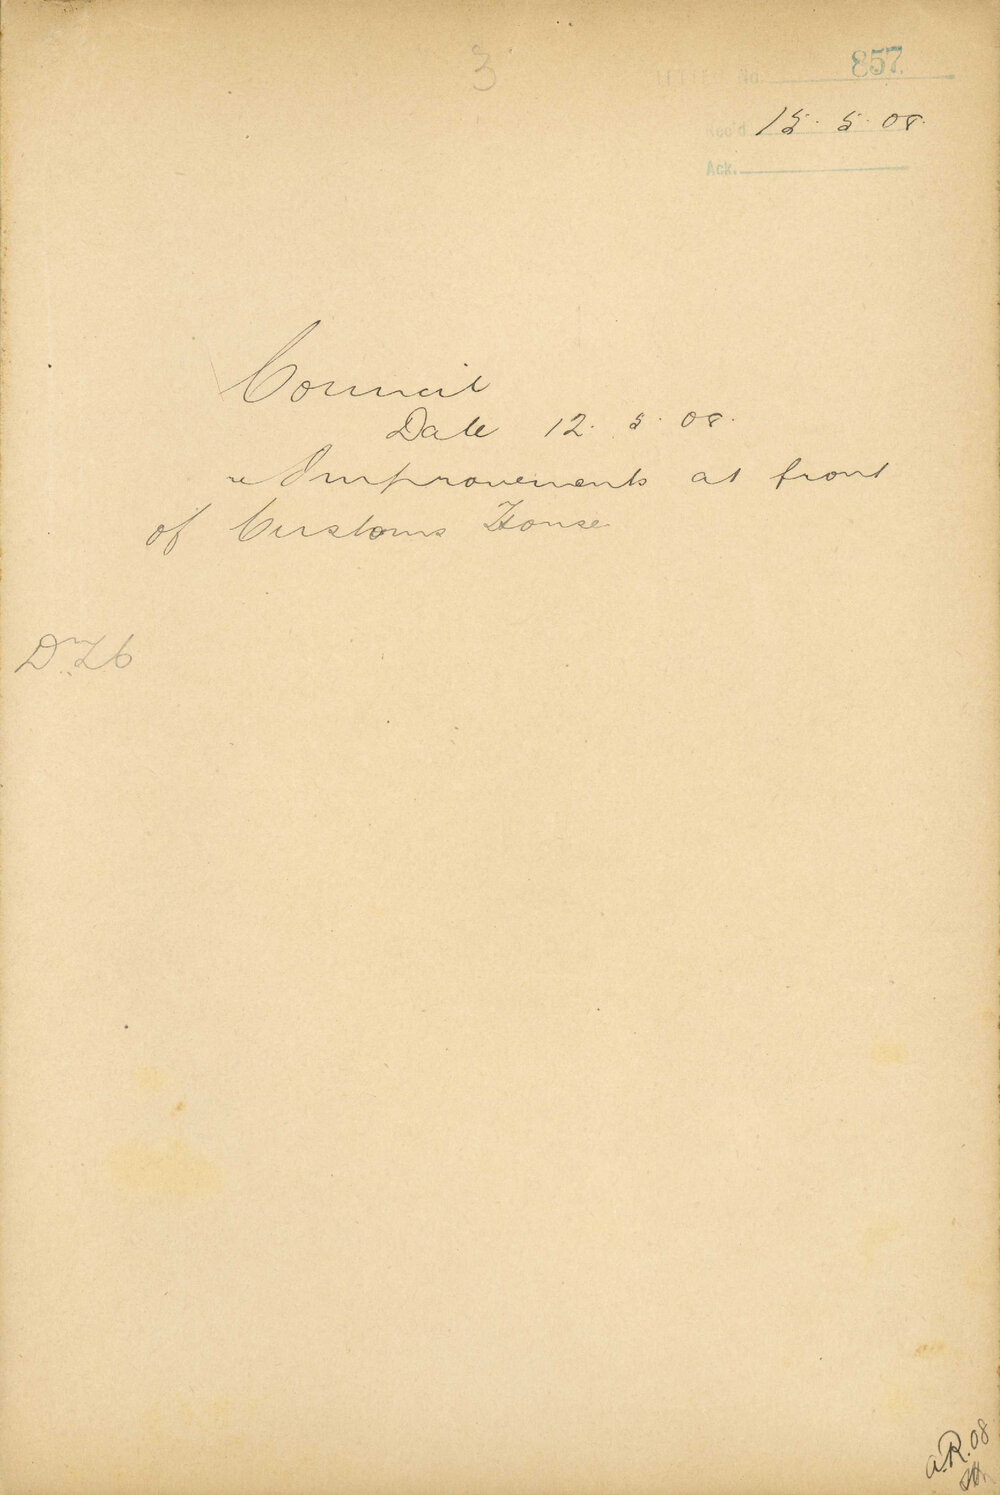 3
LETTER No. 857
Rec'd 15. 5. 08.
Ack.
Council
Date 12. 5. 08.
re Improvements at front
of Customs House
A.R. 08